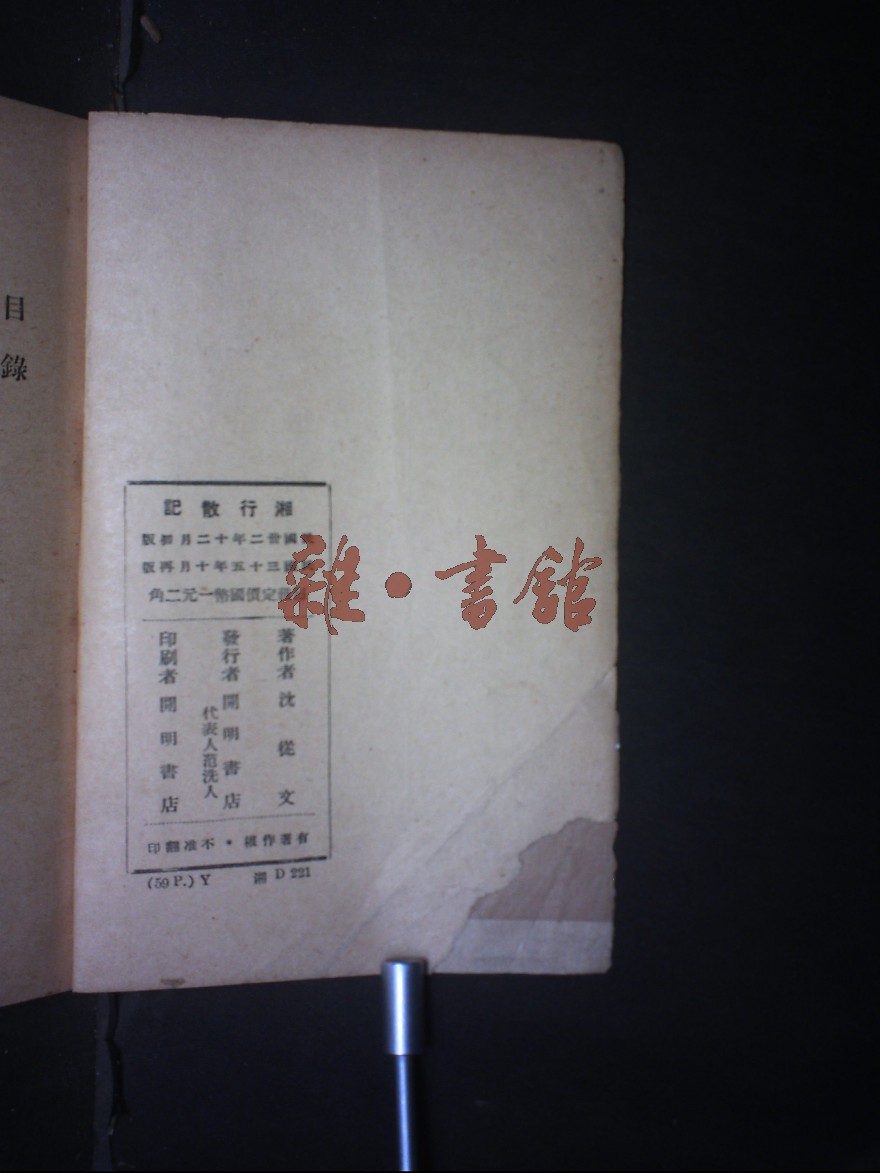 目錄
湘行散記
民國卅二年十二月初版
民國三十五年十月再版
定價國幣一元二角
著作者 沈從文
發行者 開明書店
代表人范洗人
印刷者 開明書店
有著作權•不准翻印
(59 P.) Y 湘 D 221
雜•書館